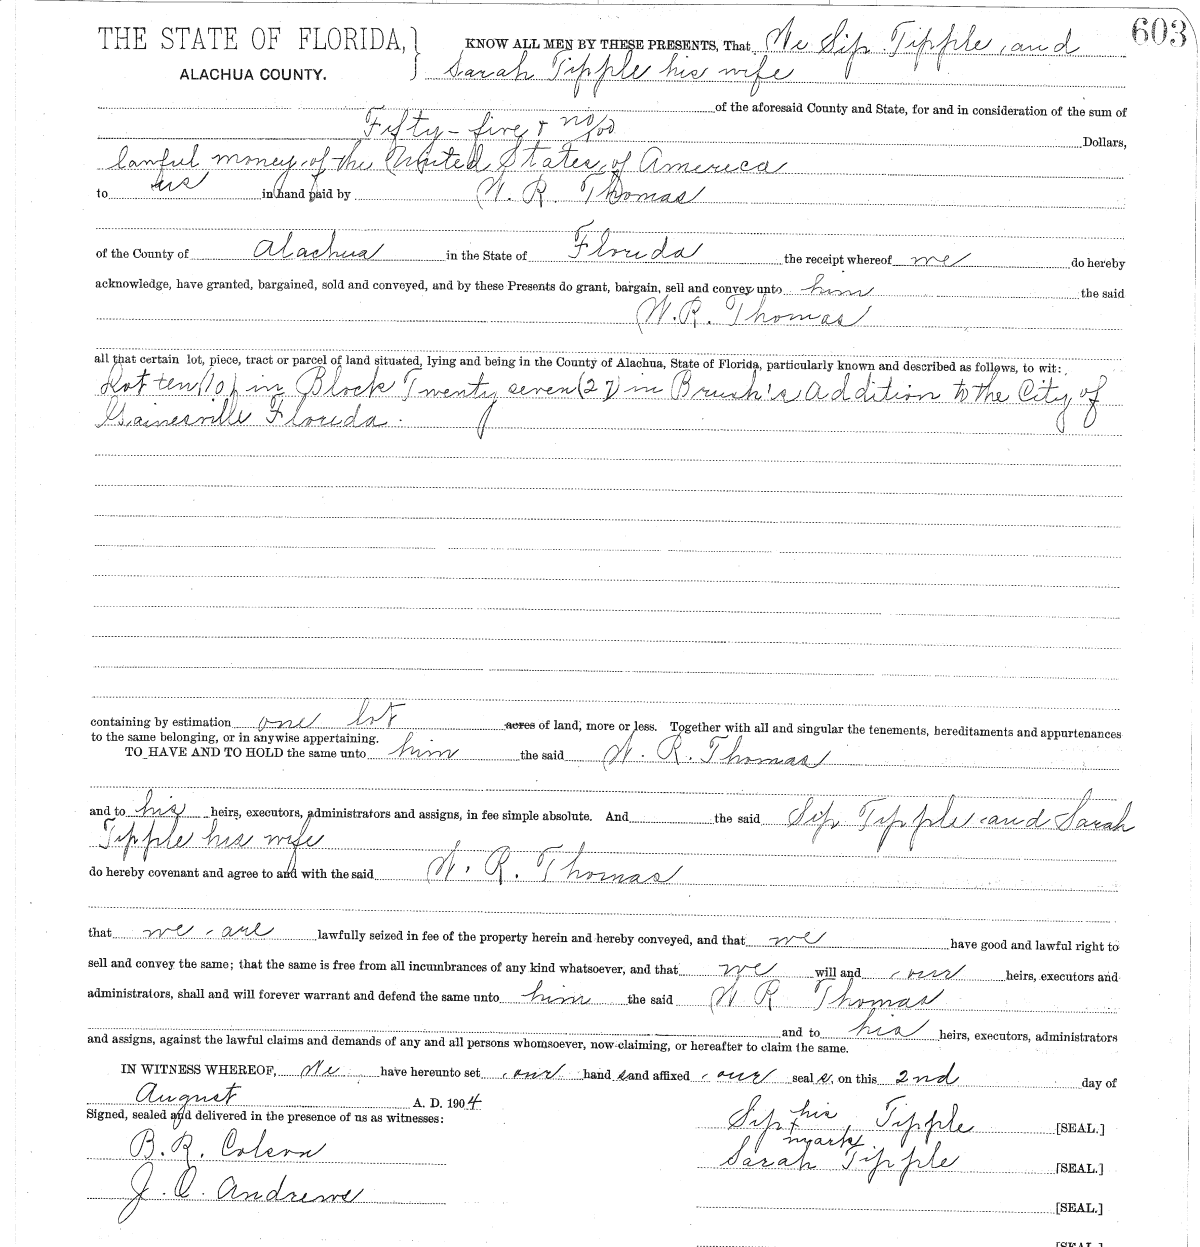 603
THE STATE OF FLORIDA, } KNOW ALL MEN BY THESE PRESENTS, That We Sip Tipple, and
ALACHUA COUNTY. Sarah Tipple his wife
of the aforesaid County and State, for and in consideration of the sum of
Fifty-five & no/00 Dollars,
lawful money of the United States of America
to us in hand paid by W. R. Thomas
of the County of Alachua in the State of Florida the receipt whereof we do hereby
acknowledge, have granted, bargained, sold and conveyed, and by these Presents do grant, bargain, sell and convey unto him the said
W. R. Thomas
all that certain lot, piece, tract or parcel of land situated, lying and being in the County of Alachua, State of Florida, particularly known and described as follows, to wit:
Lot ten (10) in Block Twenty seven (27) in Brush's Addition to the City of
Gainesville Florida.
containing by estimation one lot acres of land, more or less. Together with all and singular the tenements, hereditaments and appurtenances
to the same belonging, or in anywise appertaining.
TO HAVE AND TO HOLD the same unto him the said W. R. Thomas
and to his heirs, executors, administrators and assigns, in fee simple absolute. And the said Sip Tipple and Sarah
Tipple his wife
do hereby covenant and agree to and with the said W. R. Thomas
that we are lawfully seized in fee of the property herein and hereby conveyed, and that we have good and lawful right to
sell and convey the same; that the same is free from all incumbrances of any kind whatsoever, and that we will and our heirs, executors and
administrators, shall and will forever warrant and defend the same unto him the said W R Thomas
and to his heirs, executors, administrators
and assigns, against the lawful claims and demands of any and all persons whomsoever, now claiming, or hereafter to claim the same.
IN WITNESS WHEREOF, We have hereunto set our hand s and affixed our seal s, on this 2nd day of
August A. D. 1904
Signed, sealed and delivered in the presence of us as witnesses:
Sip his x mark Tipple [SEAL.]
B. R. Colson
Sarah Tipple [SEAL.]
J. C. Andrews
[SEAL.]
[SEAL.]